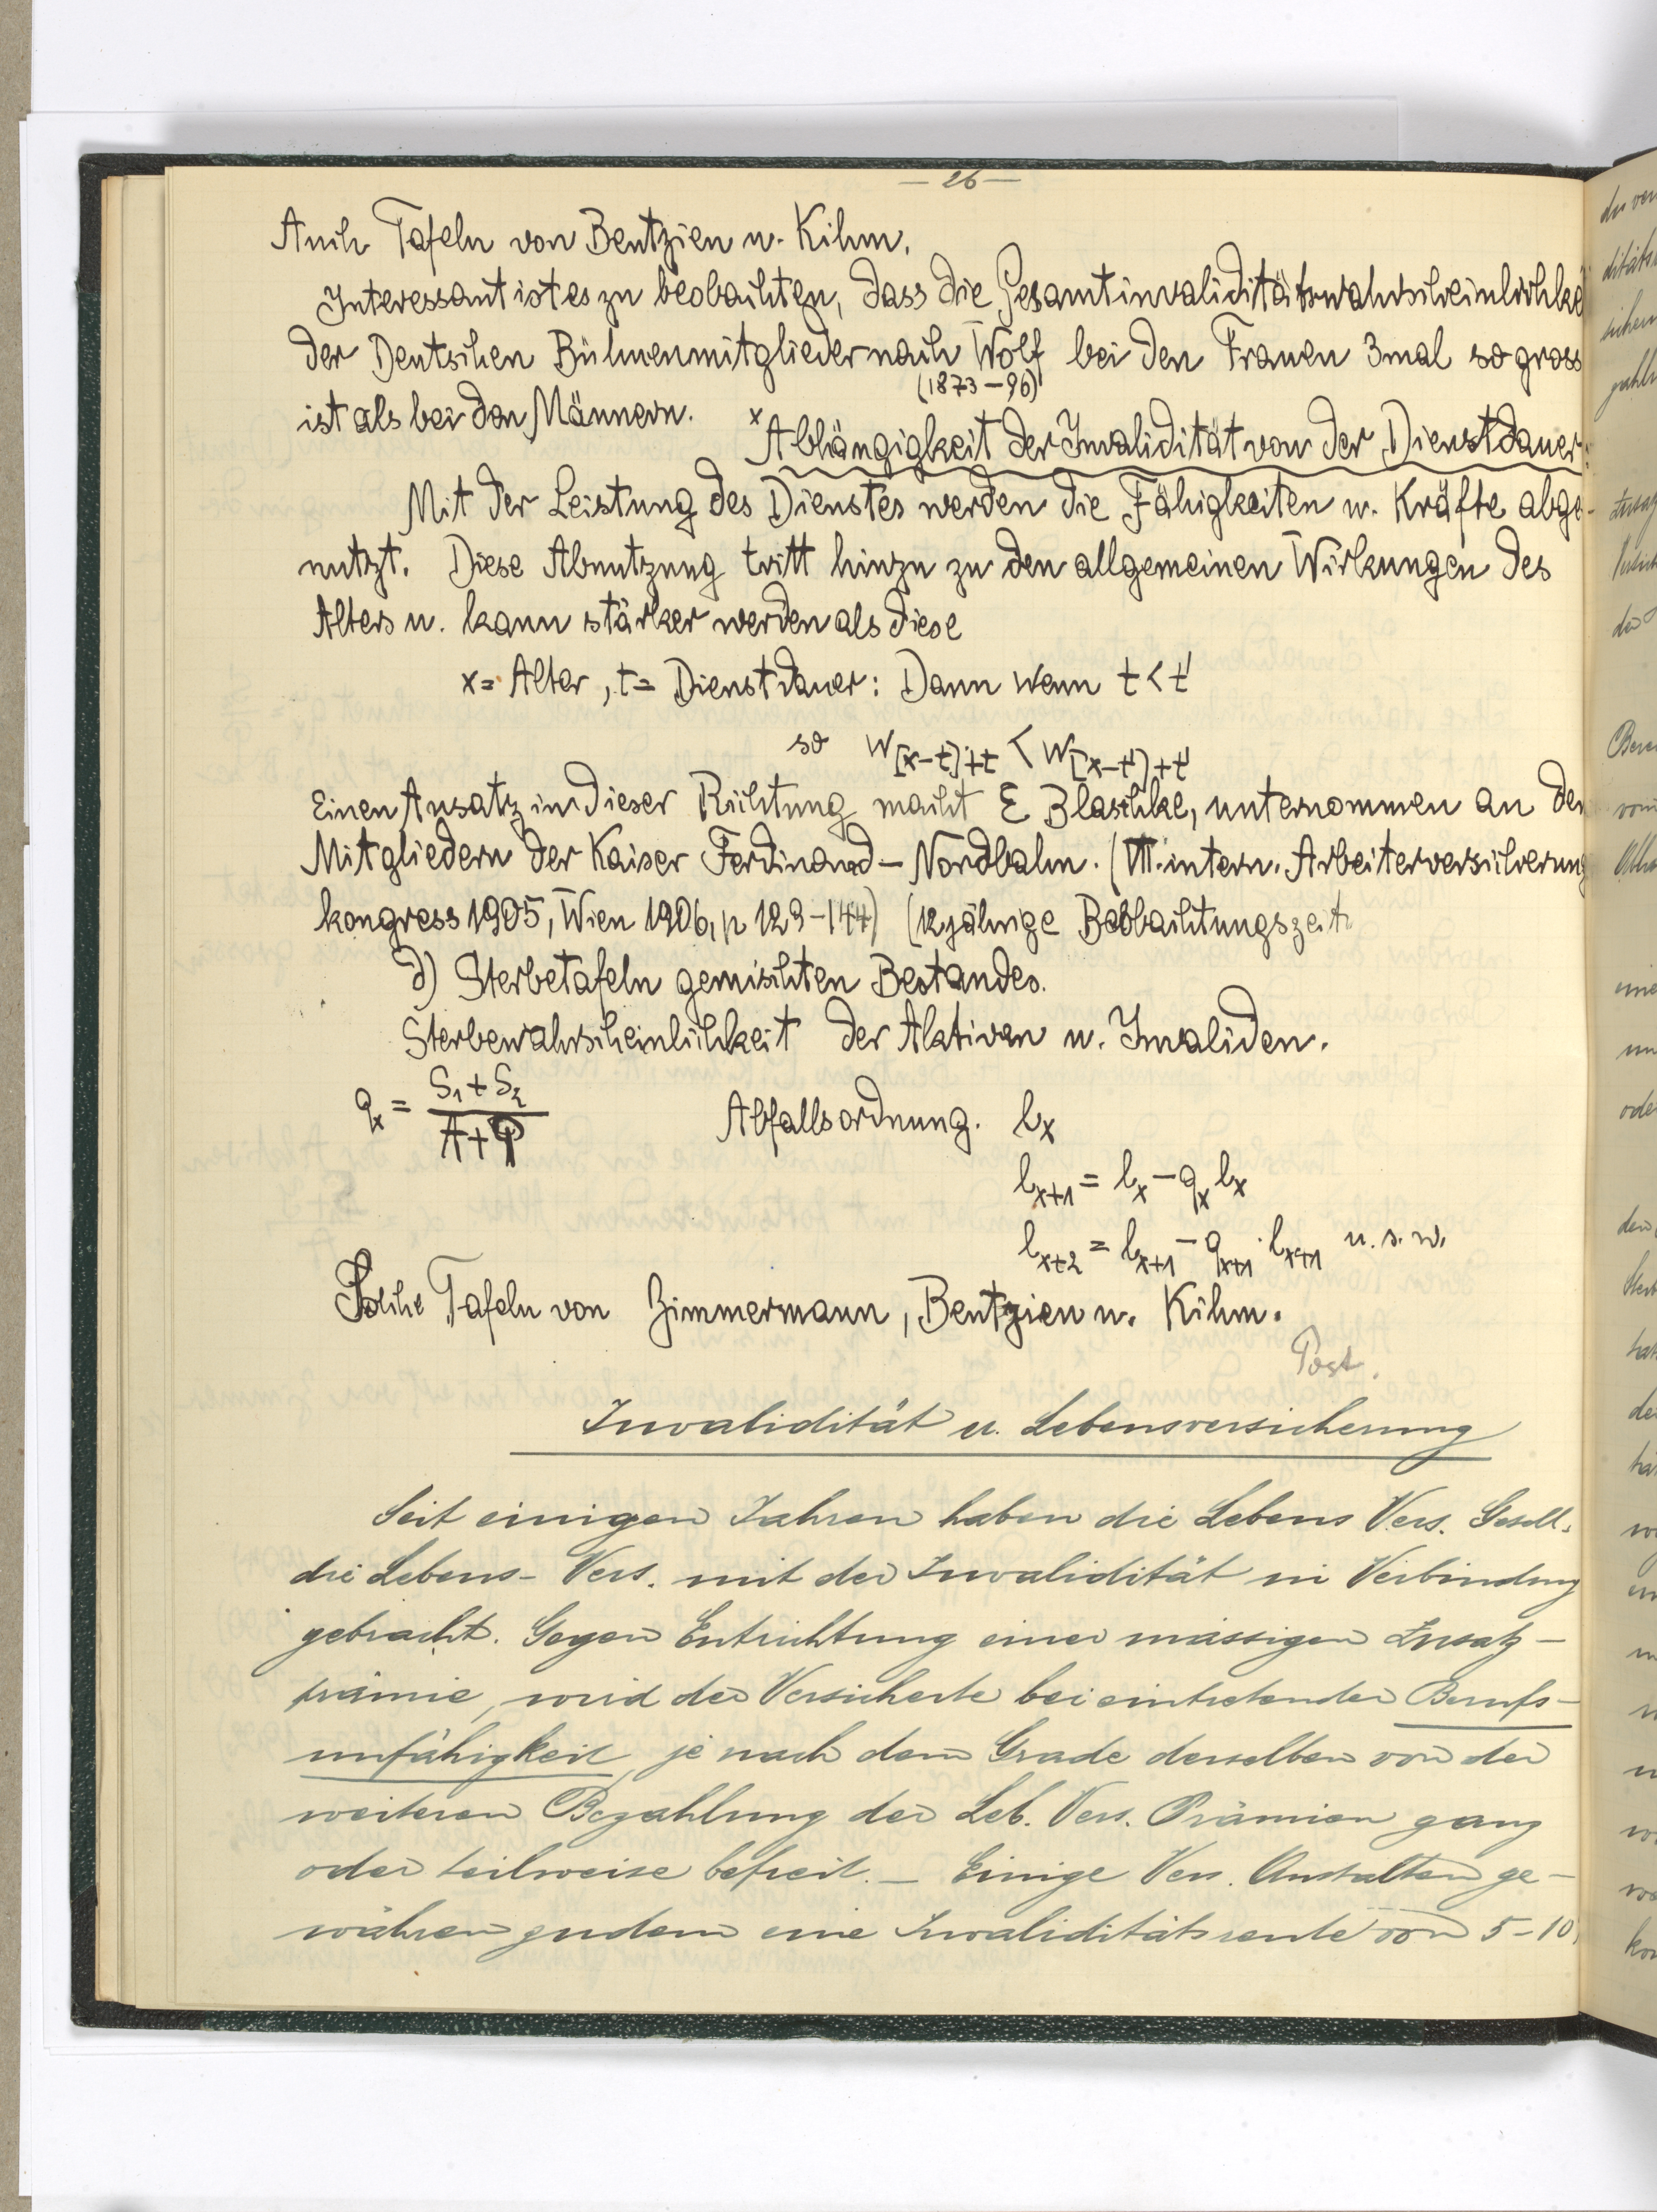 — 26 —
Auch Tafeln von Bentzien u. Kihm.
Interessant ist es zu beobachten, dass die Gesamtinvaliditätswahrscheinlichke
der Deutschen Bühnenmitglieder nach Wolf bei den Frauen 3mal so gross
(1873–96)
ist als bei den Männern.
x Abhängigkeit der Invalidität von der Dienstdauer:
Mit der Leistung des Dienstes werden die Fähigkeiten u. Kräfte abge-
nutzt. Diese Abnutzung tritt hinzu zu den allgemeinen Wirkungen des
Alters u. kann stärker werden als diese
x = Alter, t = Dienstdauer: Dann wenn t < t'
so w[x-t]+t < w[x-t']+t'
Einen Ansatz in dieser Richtung macht E Blaschke, unternommen an den
Mitgliedern der Kaiser Ferdinand – Nordbahn. (VII. intern. Arbeiterversicherung
kongress 1905, Wien 1906, p 129–144) (12jährige Beobachtungszeit
d) Sterbetafeln gemischten Bestandes.
Sterbewahrscheinlichkeit der Aktiven u. Invaliden.
qx = (S1 + S2)/(A + P) Abfallsordnung. lx
lx+1 = lx – qx lx
lx+2 = lx+1 – qx+1 · lx+1 u. s. w.
Solche Tafeln von Zimmermann, Bentzien u. Kihm.
Post.
Invalidität u. Lebensversicherung
Seit einigen Jahren haben die Lebens Vers. Gesell.
die Lebens- Vers. mit der Invalidität in Verbindung
gebracht. Gegen Entrichtung einer mässigen Zusatz –
prämie, wird der Versicherte bei eintretender Berufs –
unfähigkeit, je nach dem Grade derselben von der
weiteren Bezahlung der Leb. Vers. Prämien ganz
oder teilweise befreit. – Einige Vers. Anstalten ge –
währen zudem eine Invaliditätsrente von 5 – 10